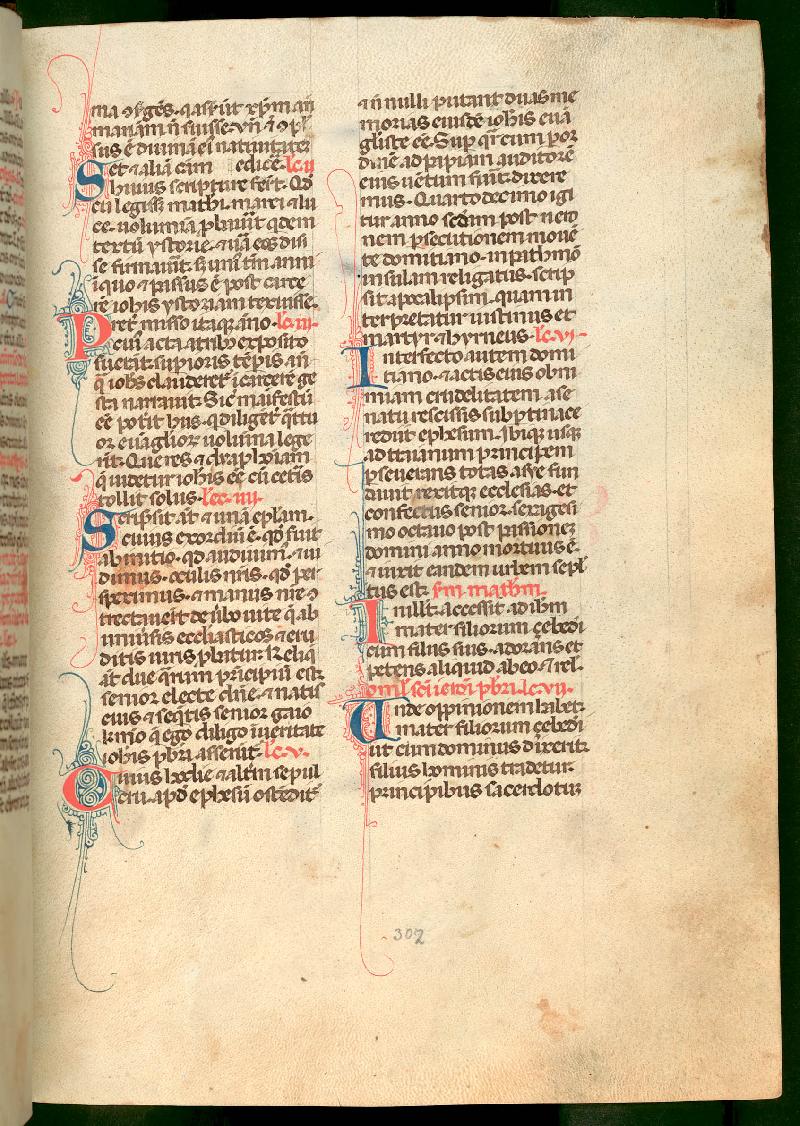 ma ⁊ sequens. q̃ asserũt xp̃m an
mariam ñ fuisse. Vñ ⁊ ↄpl
sus ẽ diuinã ei natiuitatẽ
Set ⁊ aliã cãm edicẽ. lc. ii
huius scripture ferũt. Qđ
cũ legisset mathi. marci ⁊ lu
ce. uolumina ꝓbauit qđem
textũ ystorie. ⁊ uã eos dixi
se firmauit. sꝫ uni tm̃ anni
ĩ quo ⁊ passus ẽ post carcẽ
rẽ iohis ystoriam texuisse.
Pret̃misso itaqꝫ ãno. lc. iii.
cui acta a tribꝰ exposito
fuerit. suꝑioris tẽpis añ
q̃ iohs clauderet̃ ĩ carcerẽ ge
sta narrauit. Sic maifestũ
eẽ potit hijs. q̃ diligẽt̃ q̃ttu
or euãglioꝝ uoluma lege
rit. Que res ⁊ diaphoniam
q̃ uidetur iohis eẽ cũ cetis
tollit solus. lcc. iiii.
Scripsit at̃ ⁊ unã epl̃am.
cuius exordiũ ẽ. qđ fuit
ab initio. qđ audiuim̃. ⁊ ui
dimus. oculis nris. qđ per
speximus. ⁊ manus nr̃e ↄ
trectauerũt de ũbo uite q̃ ab
uniũsis ecclãsticos ⁊ eru
ditis uiris ꝓbatur. Reliq̃
at̃ due q̃rum principiũ est
senior electe dñe. ⁊ natis
eius ⁊ seq̃tis senior gaio
kmio q̃ ego diligo ĩ ueritate
iohis pbr̃i asserit. lc. v.
Cuius hodie ⁊ altm̃ sepul
crũ. apđ ephesũ ostẽdit̃
⁊ ñ nulli putant duas me
morias eiusdẽ iohis euã
gliste eẽ. Suꝑ q̃ re cum ꝑ or
dinẽ ad papiam auditorẽ
eius uẽtum fũit. dixere
mus. Quartodecimo igi
tur anno secũm post nero
nem ꝑsecutionem mouẽ
te domitiano. in pathmõ
insulam religatus. scrip
sit apocalipsim. quam in
terpretatur iustinus et
martyr ⁊ hyrneus. lc. vi.
Interfecto autem domi
tiano. ⁊ actis eius ob ni
miam crudelitatem a se
natu rescissis sub ꝑtinace
redit ephesum. Ibiqꝫ usqꝫ
ad traianum principem
ꝑseuerans totas asye fun
dauit rexitqꝫ ecclesias. et
confectus senio. sexagesi
mo octauo post passionez
domini anno mortuus ẽ.
⁊ iuxit eandem urbem sepl̃
tus est. sm̃ mathm̃.
In illt̃. accessit ad ihm̃
mater filiorum çebedi
cum filiis suis. adorãs et
petens aliquid ab eo. ⁊ rel̃.
oml̃ sc̃i ieroñ pbr̃i. lc. vii.
Unde oppinionem habet
mater filiorum çebedi
ut cum dominus dixerit.
filius hominis tradetur
principibus sacerdotuȝ
302